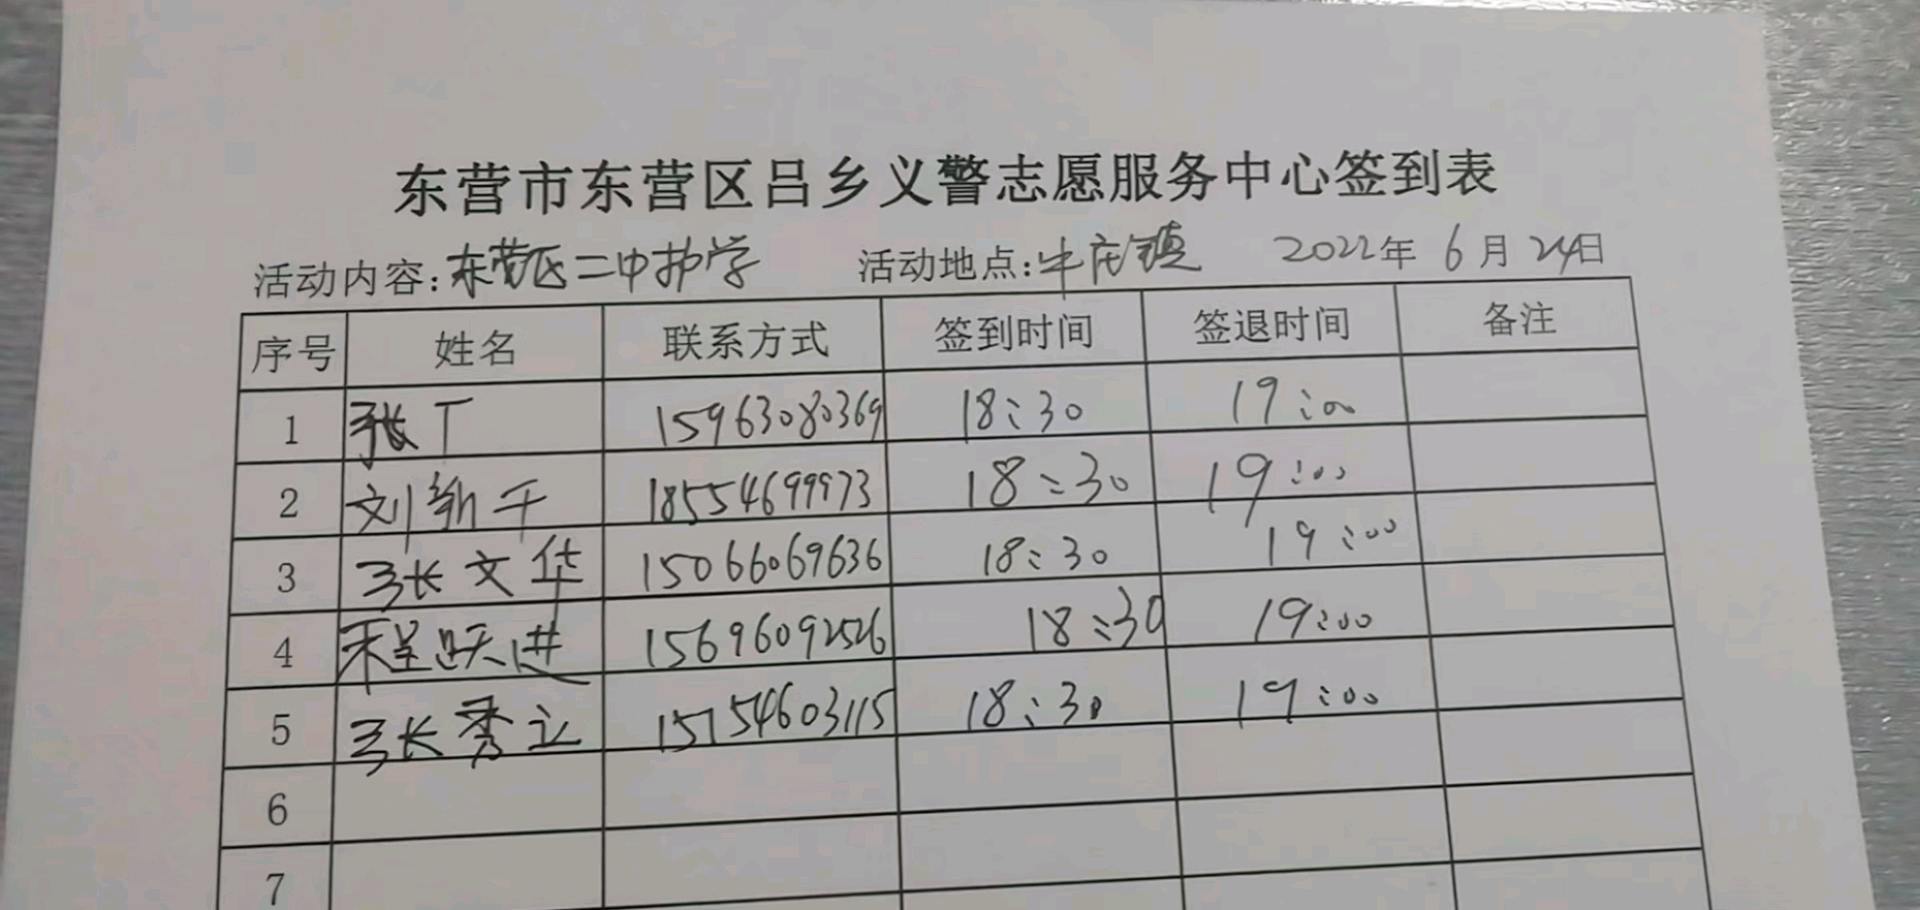 东营市东营区吕乡义警志愿服务中心签到表
活动内容:东营区二中护学 活动地点:牛庄镇 2022年6月24日
序号 姓名 联系方式 签到时间 签退时间 备注
1 张丁 15963080369 18:30 19:00
2 刘新千 18554699973 18:30 19:00
3 张文华 15066069636 18:30 19:00
4 程跃进 15696092526 18:30 19:00
5 张秀立 15154603115 18:30 19:00
6
7